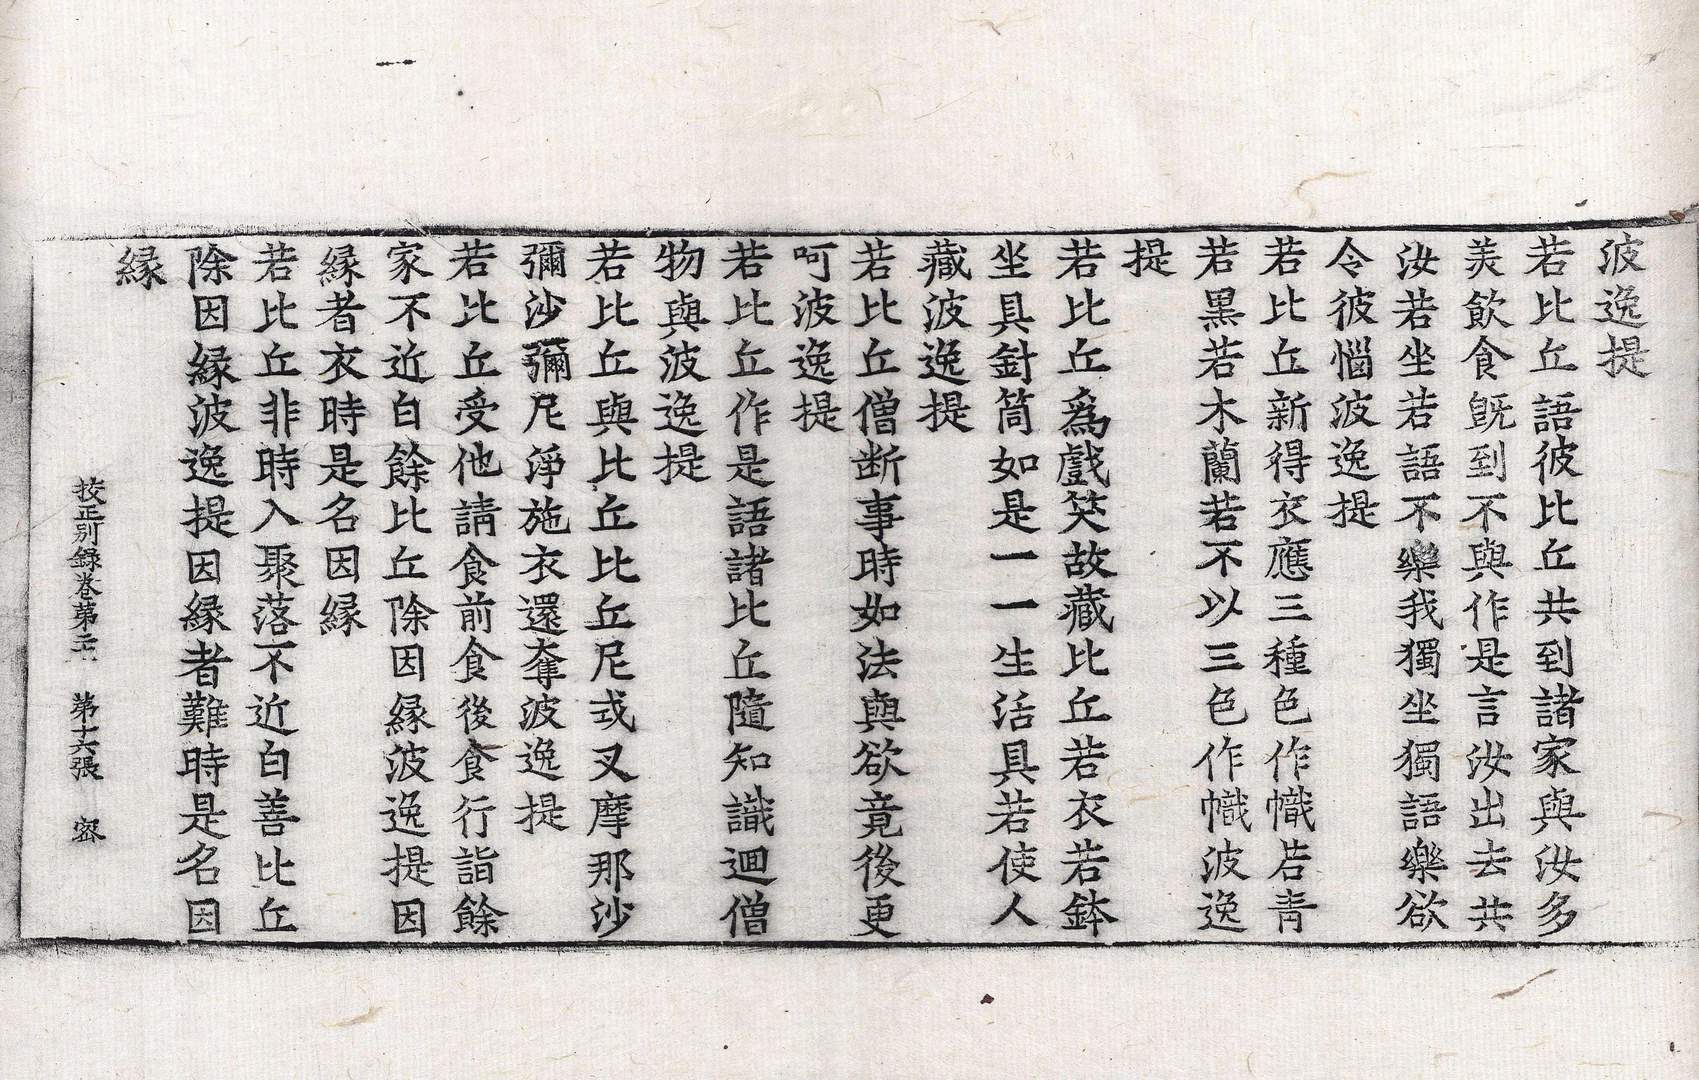 波逸提
若比丘語彼比丘共到諸家與汝多
美飲食旣到不與作是言汝出去共
汝若坐若語不樂我獨坐獨語樂欲
令彼惱波逸提
若比丘新得衣應三種色作幟若青
若黑若木蘭若不以三色作幟波逸
提
若比丘爲戲笑故藏比丘若衣若鉢
坐具針筒如是一一生活具若使人
藏波逸提
若比丘僧断事時如法與欲竟後更
呵波逸提
若比丘作是語諸比丘隨知識迴僧
物與波逸提
若比丘與比丘比丘尼式叉摩那沙
彌沙彌尼淨施衣還奪波逸提
若比丘受他請食前食後食行詣餘
家不近白餘比丘除因縁波逸提因
縁者衣時是名因縁
若比丘非時入聚落不近白善比丘
除因縁波逸提因縁者難時是名因
縁
挍正別録卷第 第十六張 密